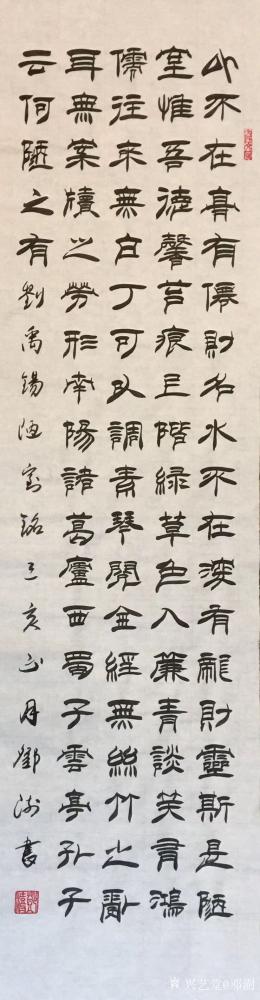 山不在高有僊則名水不在深有龍則靈斯是陋
室惟吾德馨苔痕上階綠草色入簾青談笑有鴻
儒往來無白丁可以調素琴閱金經無絲竹之亂
耳無案牘之勞形南陽諸葛廬西蜀子雲亭孔子
云何陋之有劉禹錫陋室銘己亥正月鄧澍書
兴艺堂@邓澍